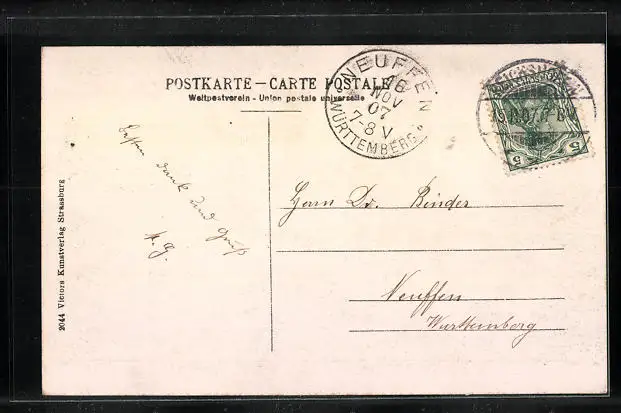 POSTKARTE – CARTE POSTALE
Weltpostverein - Union postale universelle
NEUFFEN
16
NOV
07
7-8 V
WÜRTTEMBERG
5 5
Besten Dank und Gruß
H. G.
Herrn Dr. Binder
Neuffen
Württemberg
2044 Victors Kunstverlag Strassburg